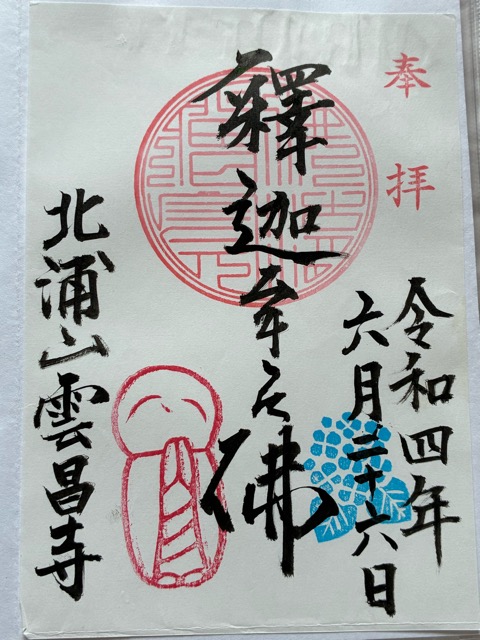 奉拝
令和四年
六月二十六日
釋迦牟尼佛
北浦山雲昌寺